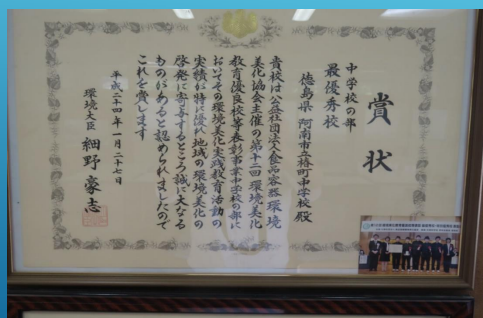 賞状
中学校の部
最優秀校
徳島県 阿南市立椿町中学校 殿
貴校は公益社団法人食品容器環境
美化協会主催の第十二回環境美化
教育優良校等表彰事業中学校の部に
おいてその環境美化実践教育活動の
実績が特に優れ地域の環境美化の
啓発に寄与するところ誠に大なる
ものがあると認められましたので
これを賞します
平成二十四年一月二十七日
環境大臣 細野豪志